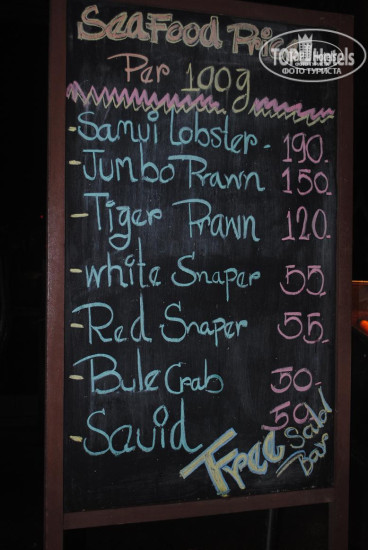 SeaFood Price
Per 100g
-Samui Lobster- 190.
-Jumbo Prawn 150.
-Tiger Prawn 120.
-white Snaper 55.
-Red Snaper 55.
-Bule Crab 50.
-Squid 50.
Free Salad Bar
TOP Hotels
ФОТО ТУРИСТА